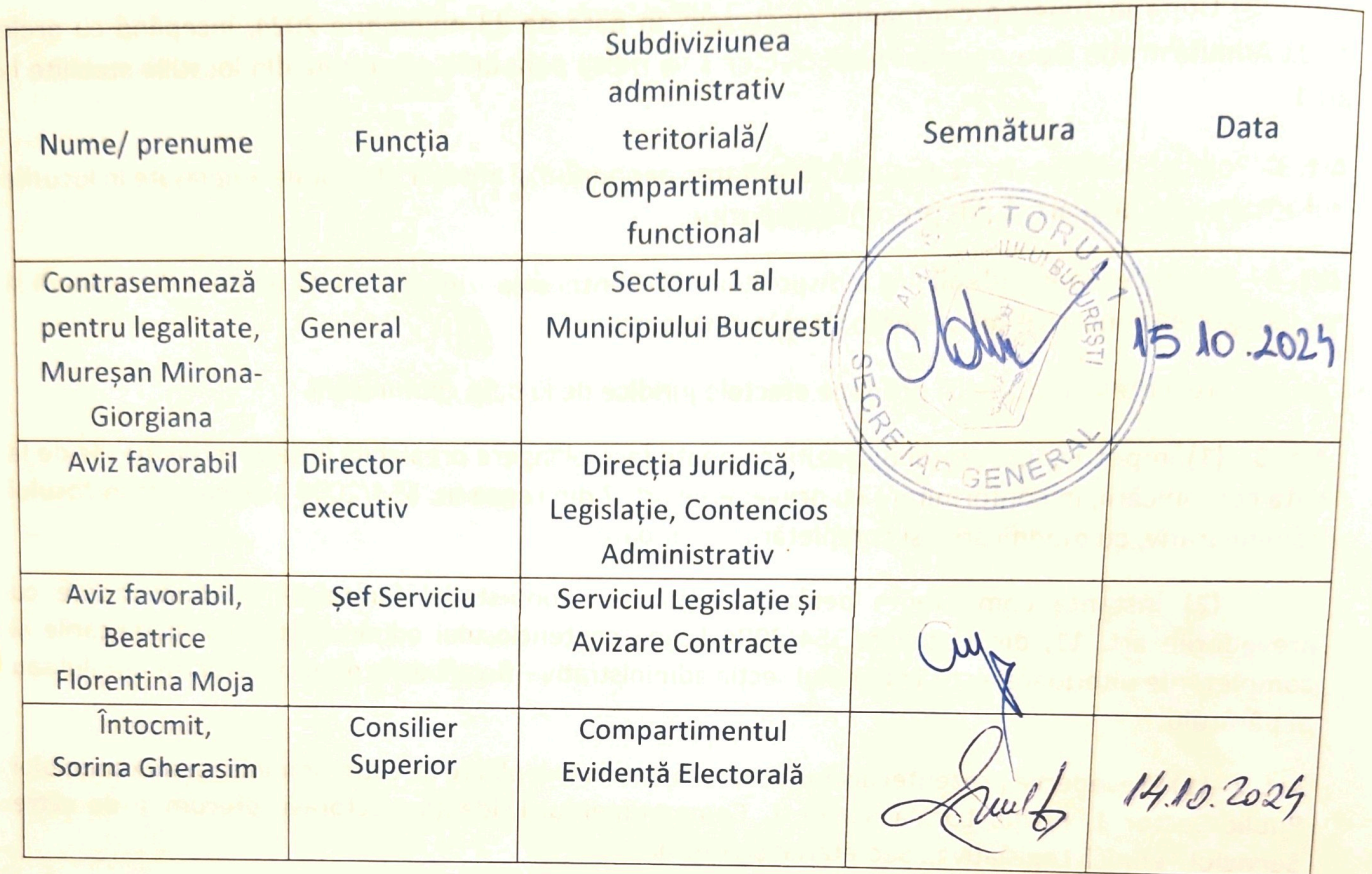 Nume/ prenume
Funcția
Subdiviziunea
administrativ
teritorială/
Compartimentul
functional
Semnătura
Data
Contrasemnează
pentru legalitate,
Mureșan Mirona-
Giorgiana
Secretar
General
Sectorul 1 al
Municipiului Bucuresti
TORUL 1
BUCUREȘTI
SECRETAR GENERAL
15 10.2024
Aviz favorabil
Director
executiv
Direcția Juridică,
Legislație, Contencios
Administrativ
Aviz favorabil,
Beatrice
Florentina Moja
Șef Serviciu
Serviciul Legislație și
Avizare Contracte
Întocmit,
Sorina Gherasim
Consilier
Superior
Compartimentul
Evidență Electorală
14.10.2024